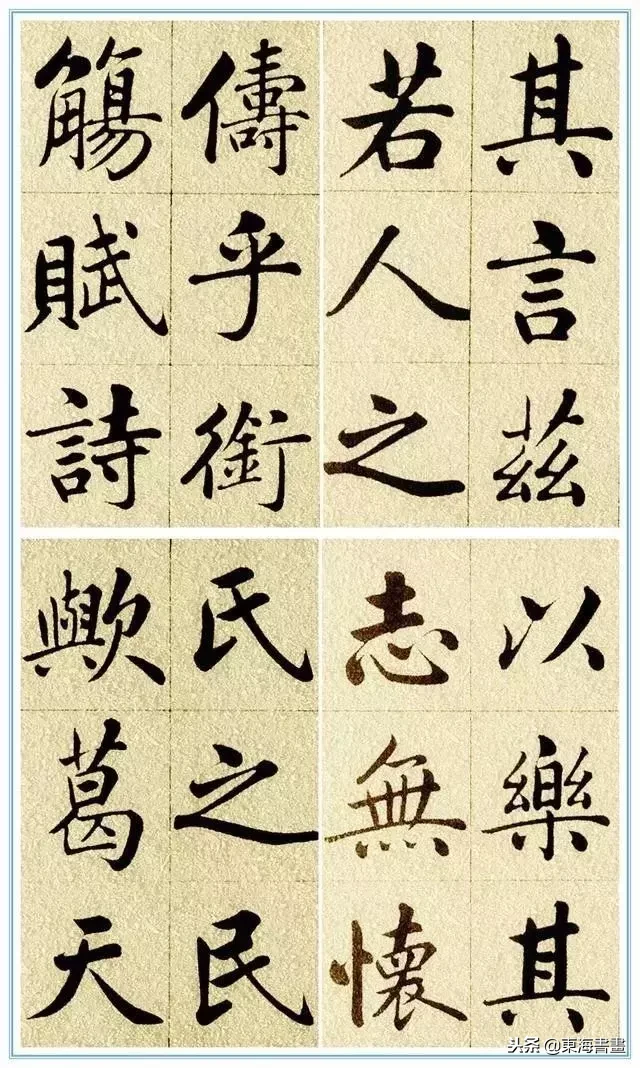 其言茲
若人之
儔乎銜
觴賦詩
以樂其
志無懷
氏之民
歟葛天
头条@東海書畫